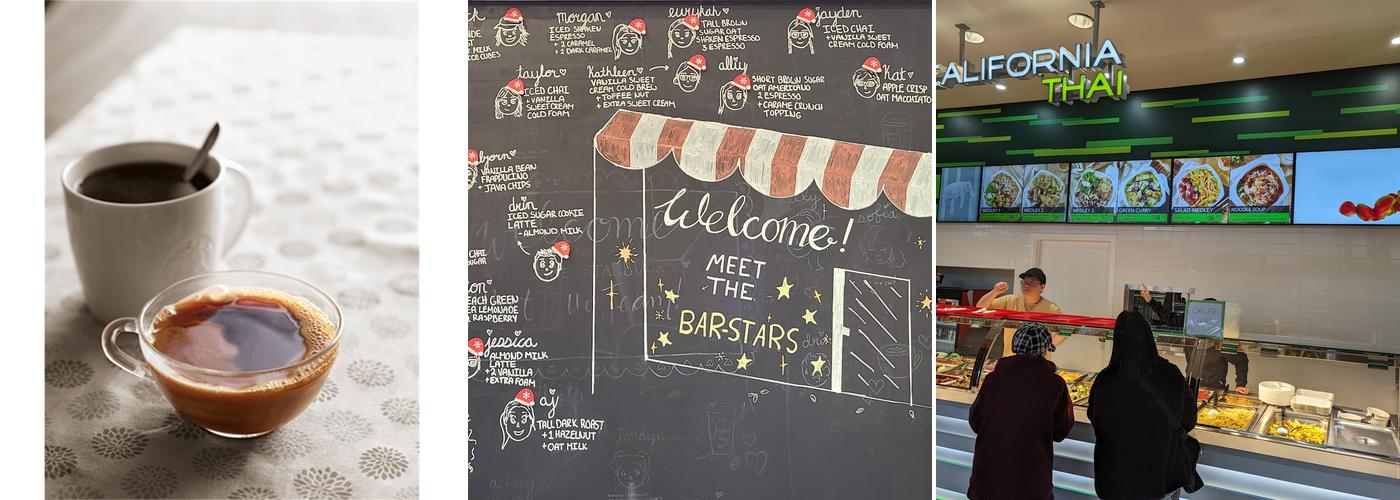 morgan♡
ICED SHAKEN
ESPRESSO
+2 CARAMEL
+2 DARK CARAMEL
eurykah♡
TALL BROWN
SUGAR OAT
SHAKEN ESPRESSO
3 ESPRESSO
jayden
ICED CHAI
+VANILLA SWEET
CREAM COLD FOAM
MILK
ICE CUBES
taylor♡
ICED CHAI
+VANILLA
SWEETCREAM
COLD FOAM
Kathleen♡
VANILLA SWEET
CREAM COLD BREW
+TOFFEE NUT
+EXTRA SWEET CREAM
alliy
SHORT BROWN SUGAR
OAT AMERICANO
2 ESPRESSO
+CARAME CRUNCH
TOPPING
Kat♡
APPLE CRISP
OAT MACCHIATO
bjorn♡
VANILLA BEAN
FRAPPUCINO
+JAVA CHIPS
drin
ICED SUGAR COOKIE
LATTE
-ALMOND MILK
CHAI
EACH GREEN
LEMONADE
RASPBERRY
jessica
ALMOND MILK
LATTE
+2 VANILLA
+EXTRA FOAM
aj
TALL DARK ROAST
+1 HAZELNUT
+OAT MILK
Welcome!
MEET
THE
BAR-STARS
sofia
jordyn
ALIFORNIA
THAI
MEDLEY 1
MEDLEY 2
MEDLEY 3
GREEN CURRY
SALAD MEDLEY
NOODLE SOUP
ORDER